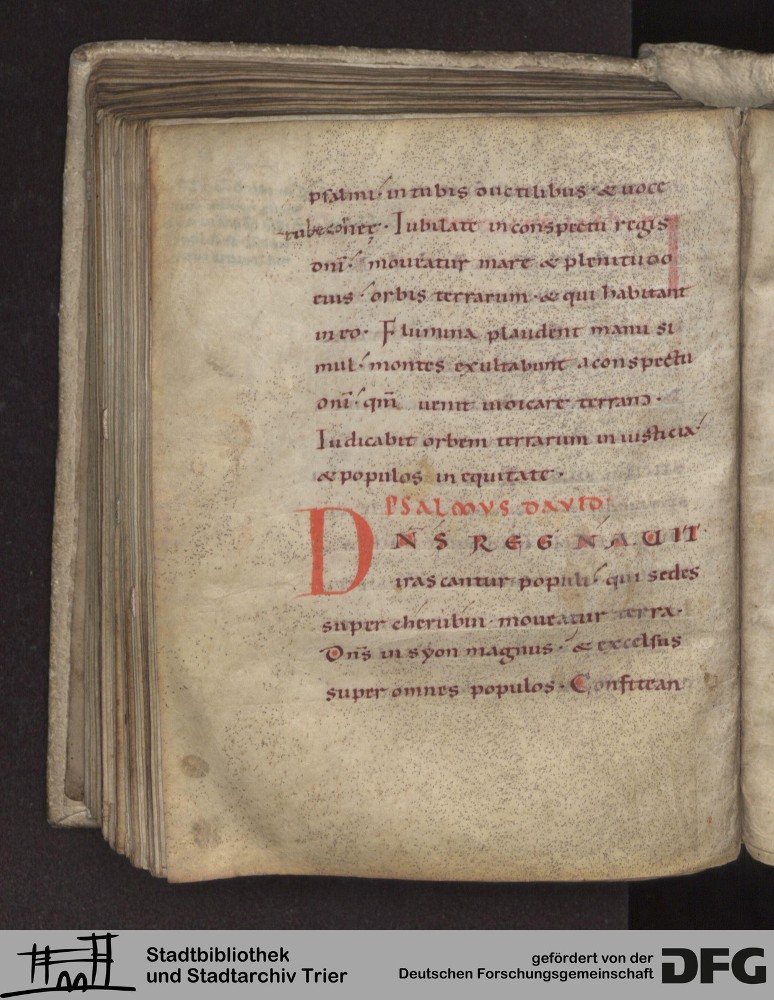 psalmi. in tubis ductilibus. & uoce
tubę corneę. Iubilate in conspectu regis
dnī. moueatur mare & plenitudo
eius. orbis terrarum. & qui habitant
in eo. Flumina plaudent manu si
mul. montes exultabunt a conspectu
dnī. qm̄ uenit iudicare terram.
Iudicabit orbem terrarum in iusticia.
& populos in equitate.
PSALMVS DAVID
DNS REGNAUIT
irascantur populi. qui sedes
super cherubin. moueatur terra.
Dnˉs in syon magnus. & excelsus
super omnes populos. Confitean
Stadtbibliothek
und Stadtarchiv Trier
gefördert von der
Deutschen Forschungsgemeinschaft
DFG